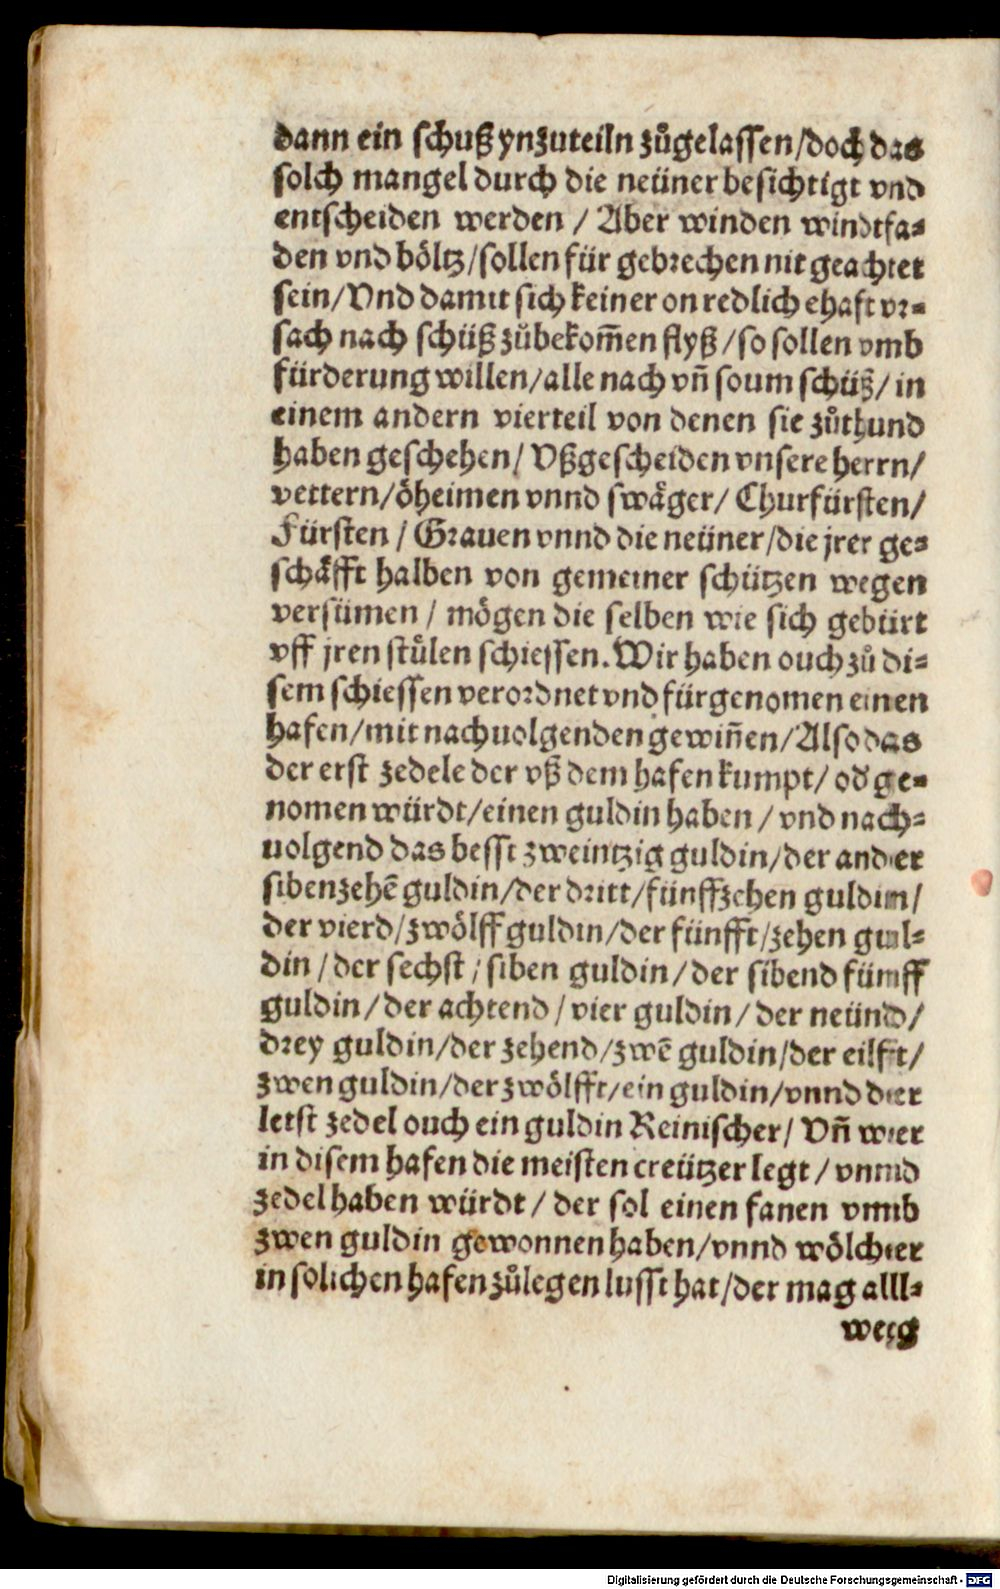 dann ein schuß ynzuteiln zůgelassen/doch das
solch mangel durch die neüner besichtigt vnd
entscheiden werden / Aber winden windtfa⸗
den vnd böltz/sollen für gebrechen nit geachtet
sein/Vnd damit sich keiner on redlich ehaft vr⸗
sach nach schüß zůbekom̄en flyß/so sollen vmb
fürderung willen/alle nach vn̄ soum schüß/in
einem andern vierteil von denen sie zůthund
haben geschehen/ Vßgescheiden vnsere herrn/
vettern/öheimen vnnd swäger/ Churfürsten/
Fürsten / Grauen vnnd die neüner/die jrer ge⸗
schäfft halben von gemeiner schützen wegen
versümen / mögen die selben wie sich gebürt
vff jren stůlen schiessen. Wir haben ouch zů di⸗
sem schiessen verordnet vnd fürgenomen einen
hafen/mit nachuolgenden gewin̄en/Also das
der erst zedele der vß dem hafen kumpt/ od ge⸗
nomen würdt/einen guldin haben / vnd nach⸗
uolgend das besst zweintzig guldin/der ander
sibenzehē guldin/der dritt/fünffzehen guldin/
der vierd/zwölff guldin/der fünfft/zehen gul⸗
din / der sechst / siben guldin / der sibend fünff
guldin / der achtend / vier guldin / der neünd/
drey guldin/der zehend/zwē guldin/der eilfft/
zwen guldin/der zwölfft/ein guldin/vnnd der
letst zedel ouch ein guldin Reinischer/ Vn̄ wer
in disem hafen die meisten creützer legt / vnnd
zedel haben würdt / der sol einen fanen vmb
zwen guldin gewonnen haben/vnnd wölcher
in solichen hafen zůlegen lusst hat/der mag all⸗
weg
Digitalisierung gefördert durch die Deutsche Forschungsgemeinschaft - DFG